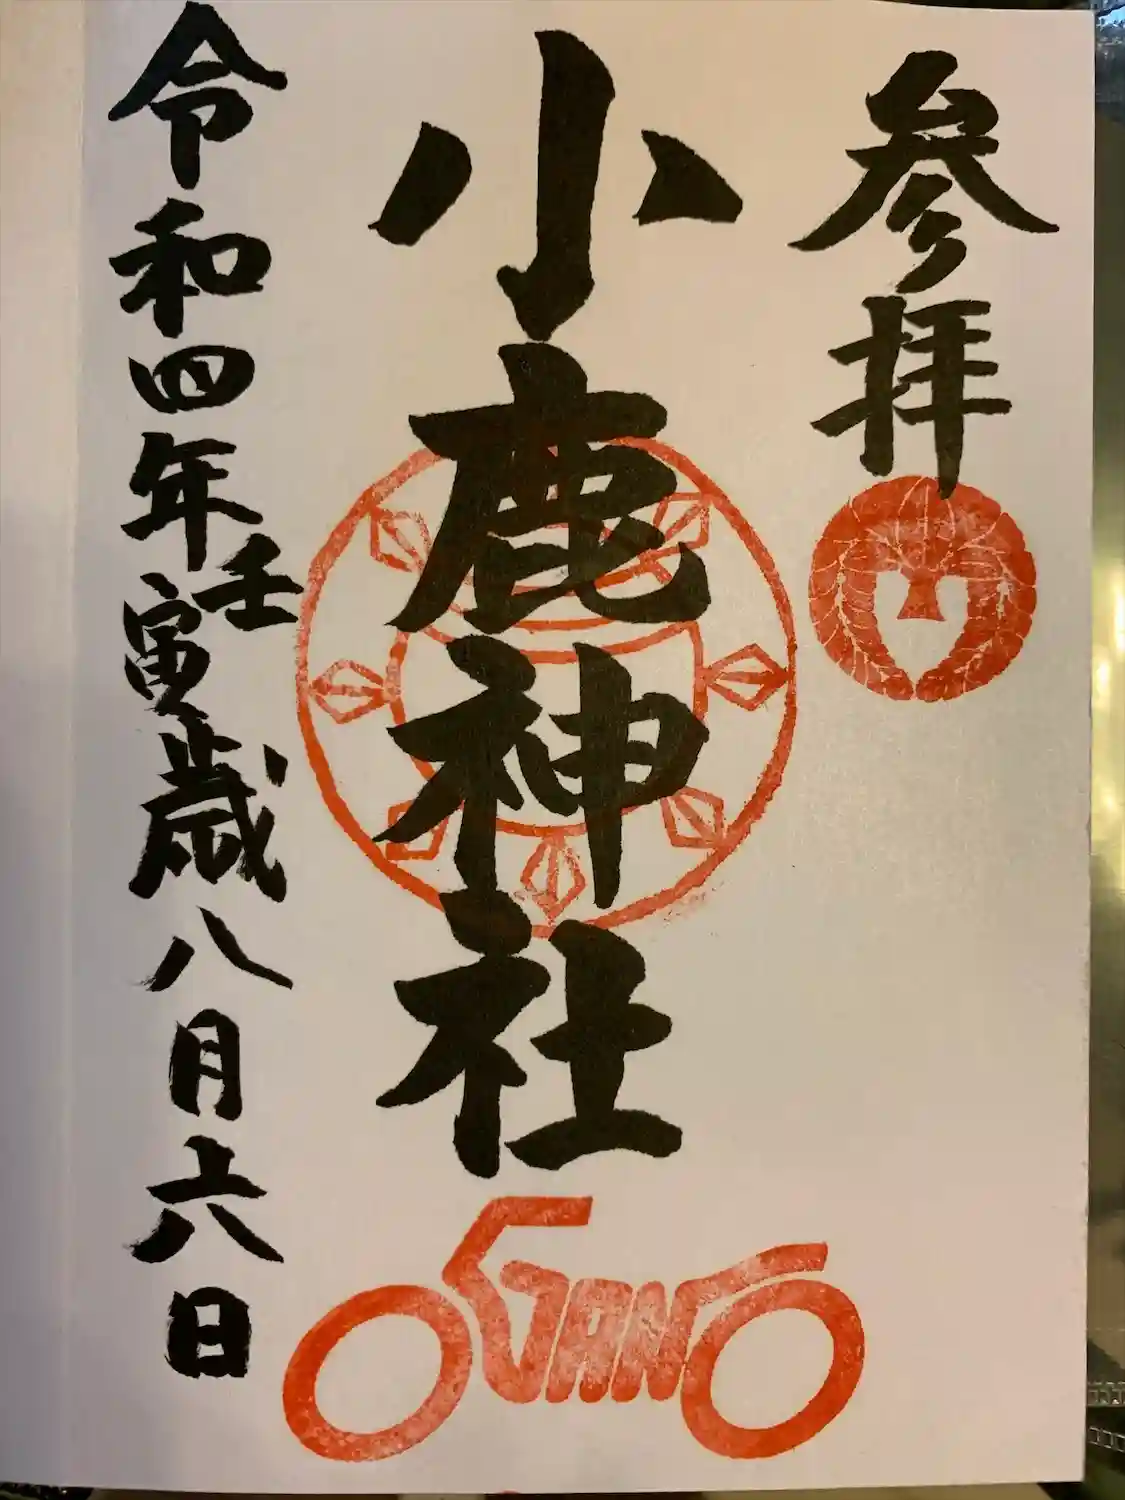 参拝
小鹿神社
令和四年壬寅歳八月六日